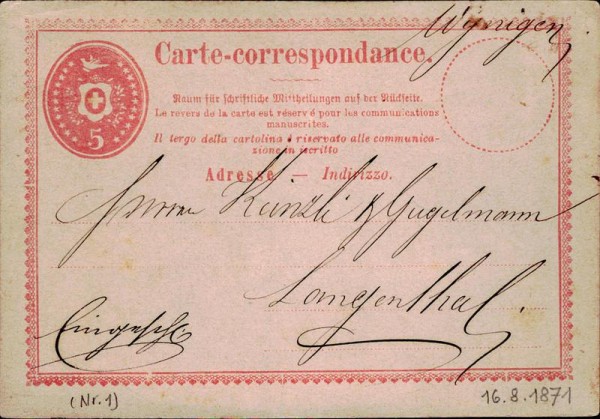 Wynigen
Carte-correspondance.
5
Raum für schriftliche Mittheilungen auf der Rückseite.
Le revers de la carte est réservé pour les communications
manuscrites.
Il tergo della cartolina è riservato alle communica-
zione in iscritto
Adresse — Indirizzo.
Herren Künzli & Gugelmann
Langenthal.
Eingesch:
(Nr. 1)
16.8.1871